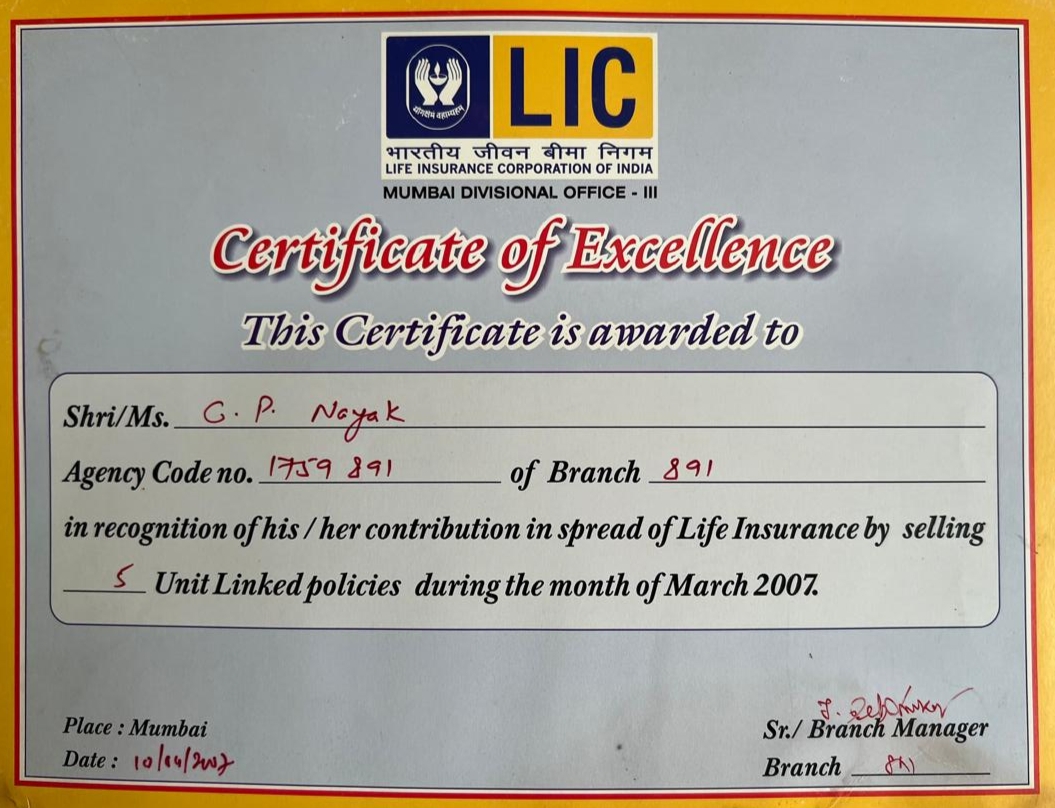 योगक्षेमं वहाम्यहम्
LIC
भारतीय जीवन बीमा निगम
LIFE INSURANCE CORPORATION OF INDIA
MUMBAI DIVISIONAL OFFICE - III
Certificate of Excellence
This Certificate is awarded to
Shri/Ms. G. P. Nayak
Agency Code no. 1759 891 of Branch 891
in recognition of his / her contribution in spread of Life Insurance by selling
5 Unit Linked policies during the month of March 2007.
Place : Mumbai
Date : 10/04/2007
Sr./ Branch Manager
Branch 891